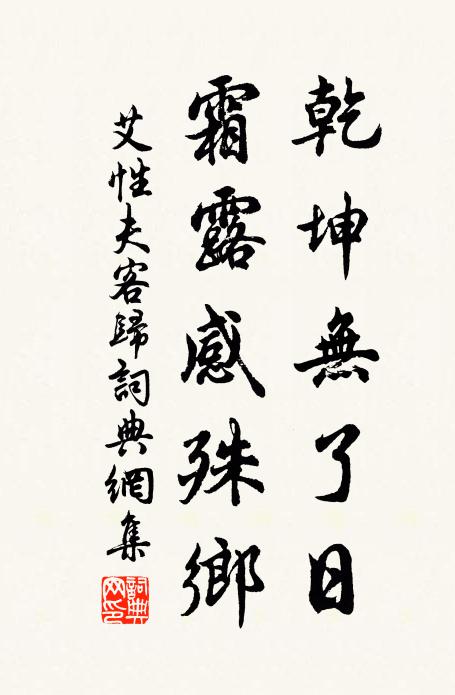 乾坤無了日
霜露感殊鄉
艾性夫客歸詞典網集
詞典網印